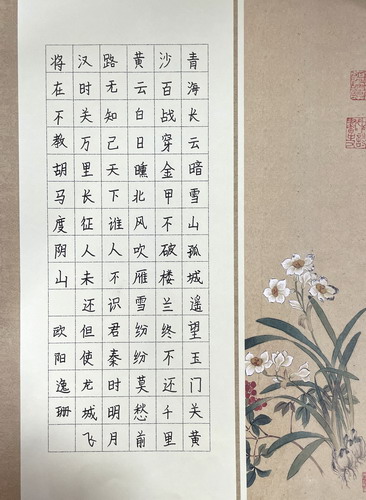 青海长云暗雪山孤城遥望玉门关黄
沙百战穿金甲不破楼兰终不还千里
黄云白日曛北风吹雁雪纷纷莫愁前
路无知己天下谁人不识君秦时明月
汉时关万里长征人未还但使龙城飞
将在不教胡马度阴山 欧阳逸珊